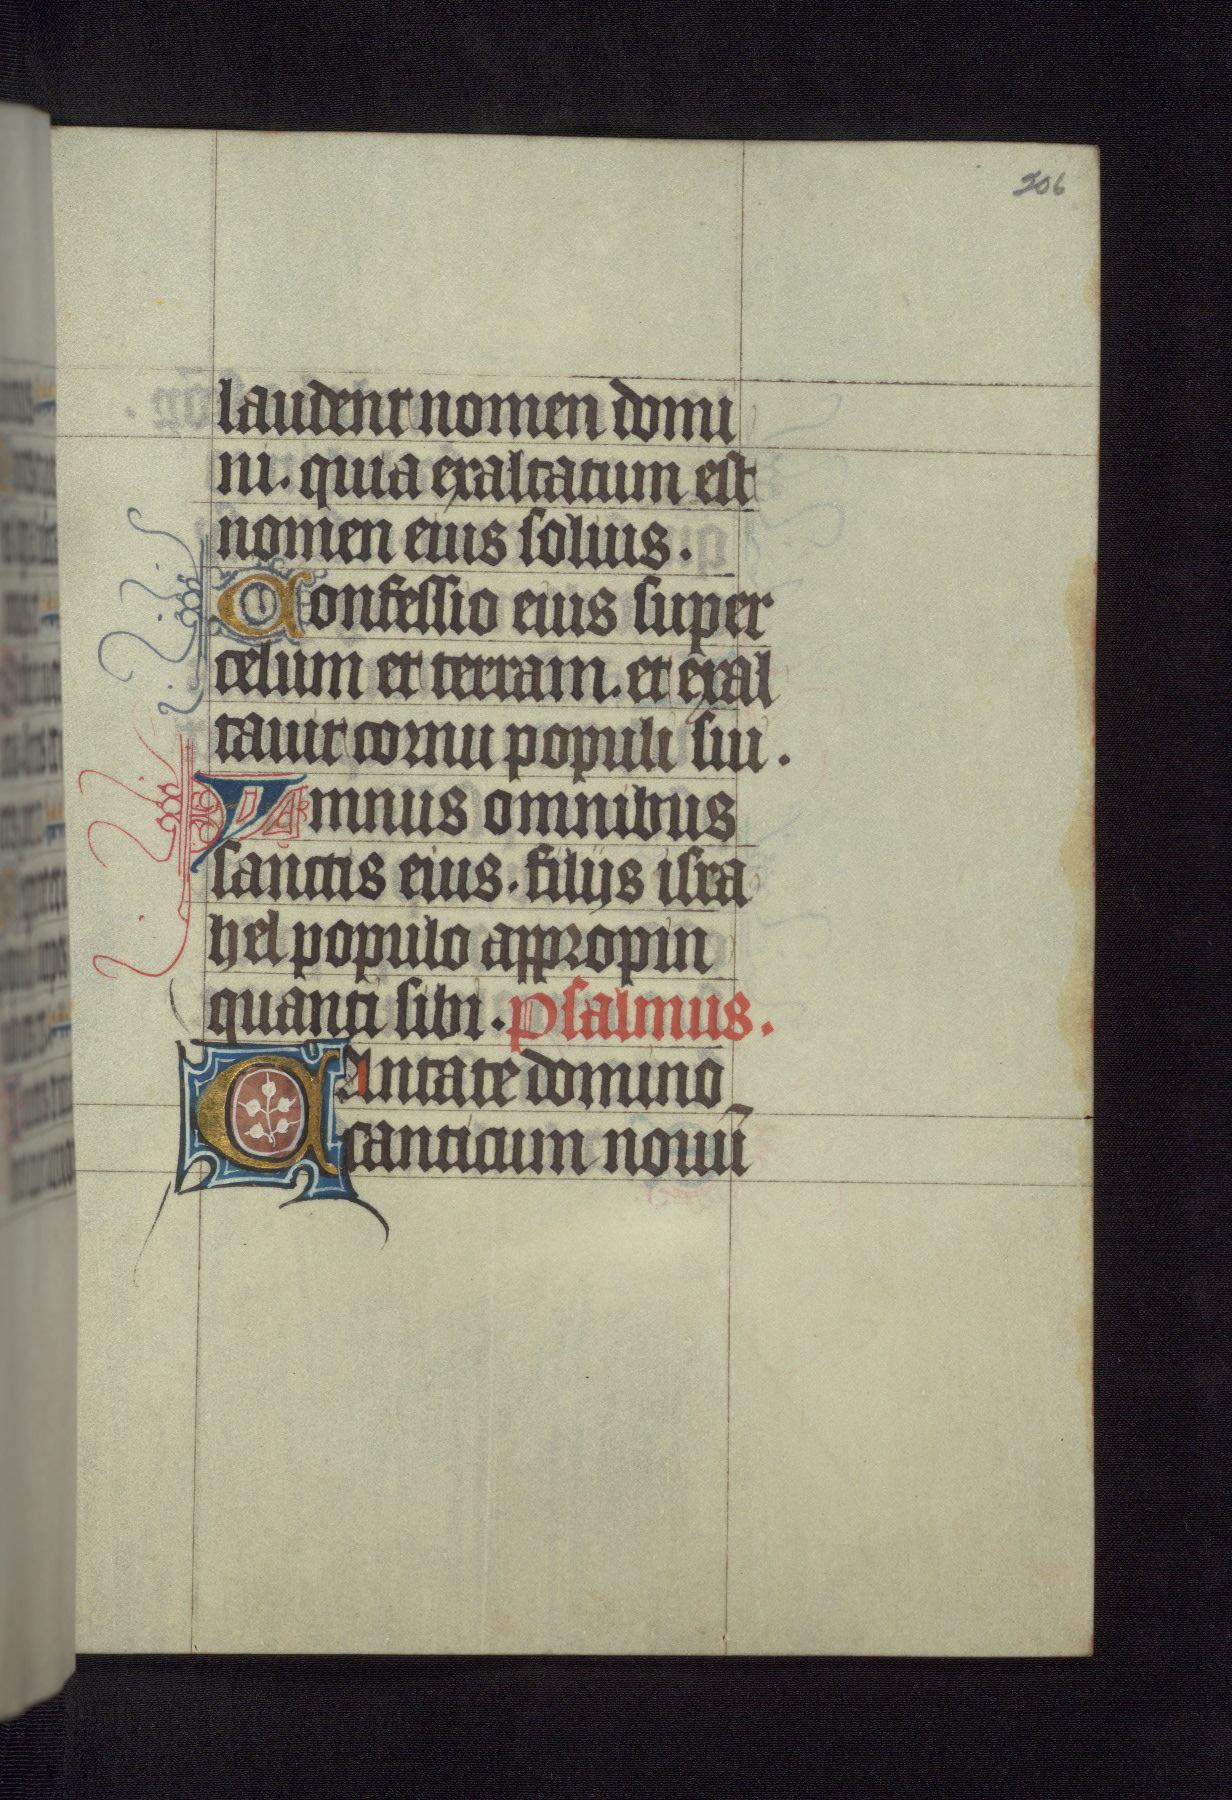 206
laudent nomen domi
ni. quia exaltatum est
nomen eius solius.
Confessio eius super
celum et terram. et exal
tauit cornu populi sui.
Ymnus omnibus
sanctis eius. filijs isra
hel populo appropin
quanti sibi. psalmus.
CAntate domino
canticum nouū